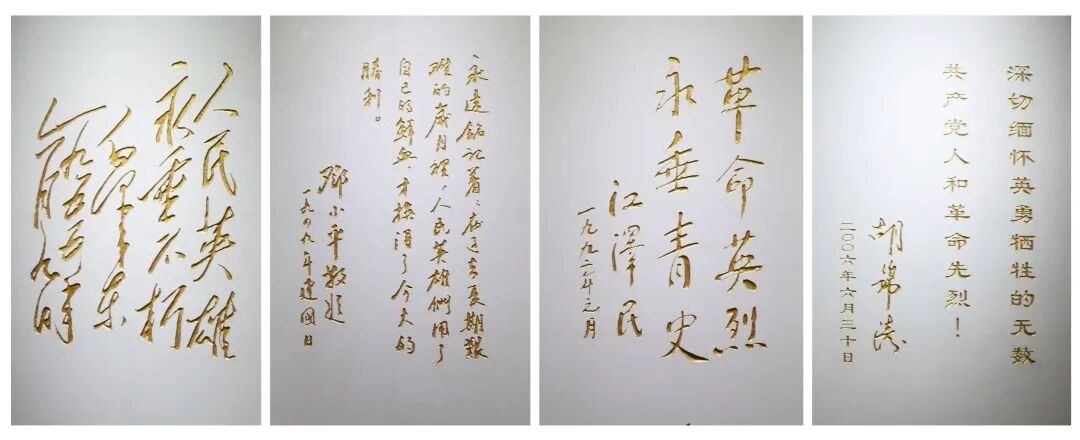 人民英雄
永垂不朽
毛泽东
一九五五年
六月九
永遠銘記着：在过去長期艱
難的歲月裡，人民英雄們用了
自己的鮮血，才換得了今天的
勝利。
鄧小平敬題
一九四九年建國日
革命英烈
永垂青史
江澤民
一九九二年元月
深切缅怀英勇牺牲的无数
共产党人和革命先烈！
胡锦涛
二00六年六月三十日